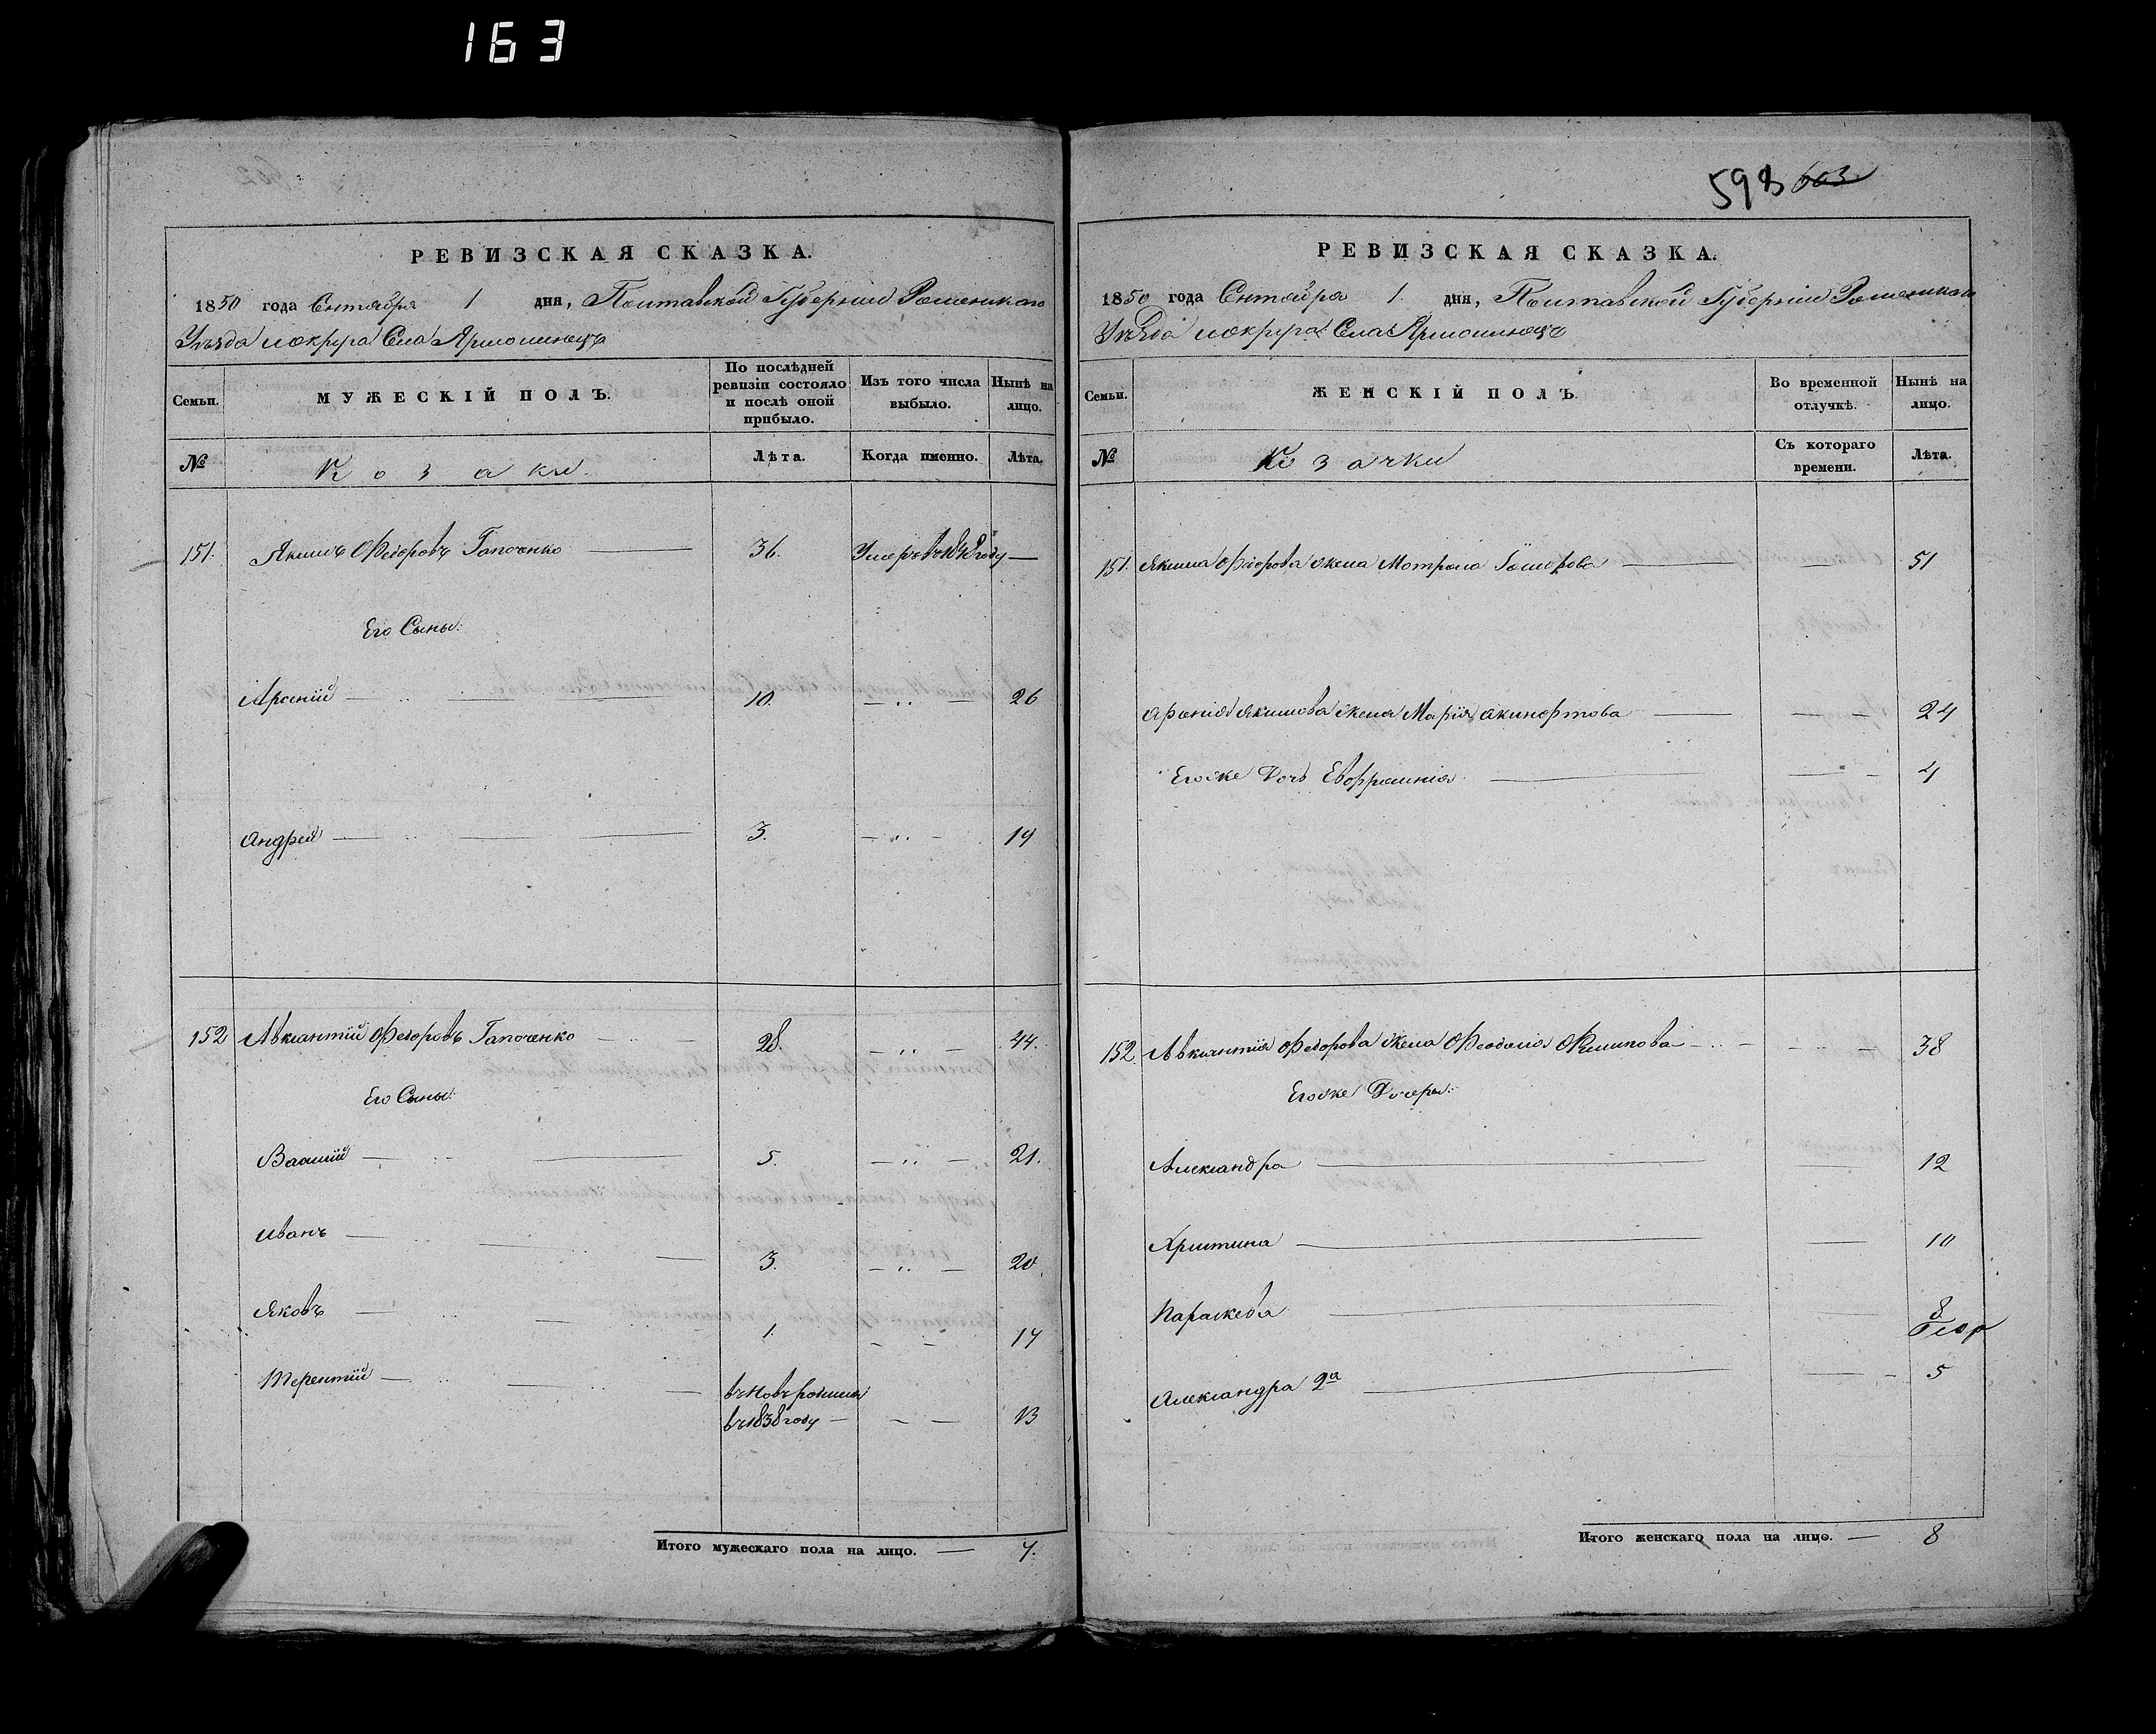 163
598 603
РЕВИЗСКАЯ СКАЗКА.
1850 года Сентября 1 дня, Полтавской Губерніи Роменскаго
Уѣзда и округа Села Ярмолинецъ
Семьи. МУЖЕСКІЙ ПОЛЪ. По послѣдней ревизіи состояло и послѣ оной прибыло. Изъ того числа выбыло. Нынѣ на лицо.
№ Козаки. Лѣта. Когда именно. Лѣта.
151. Якимъ Федоровъ Гапоченко 36. Умеръ въ 1848 году
Его Сыны:
Арсеній 10. 26
Андрей 3. 19
152 Авксентій Федоровъ Гапоченко 28. 44.
Его Сыны:
Василій 5. 21.
Иванъ 3. 20.
Яковъ 1. 17
Терентій вновь родился
въ 1838 году 13
Итого мужескаго пола на лицо. 7.
РЕВИЗСКАЯ СКАЗКА.
1850 года Сентября 1. дня, Полтавской Губерніи Роменскаго
Уѣзда и округа Села Ярмолинецъ
Семьи. ЖЕНСКІЙ ПОЛЪ. Во временной отлучкѣ. Нынѣ на лицо.
№ Козачки Съ котораго времени. Лѣта.
151. Якима Федорова жена Мотрона 51
Арсенія Якимова жена Марія 24
Его же Дочь Евфросинія 4
152 Авксентія Федорова жена Феодосія Филипова 38
Его же Дочери:
Александра 12
Христина 10
Параскева 8
Александра 2а 5
Итого женскаго пола на лицо. 8